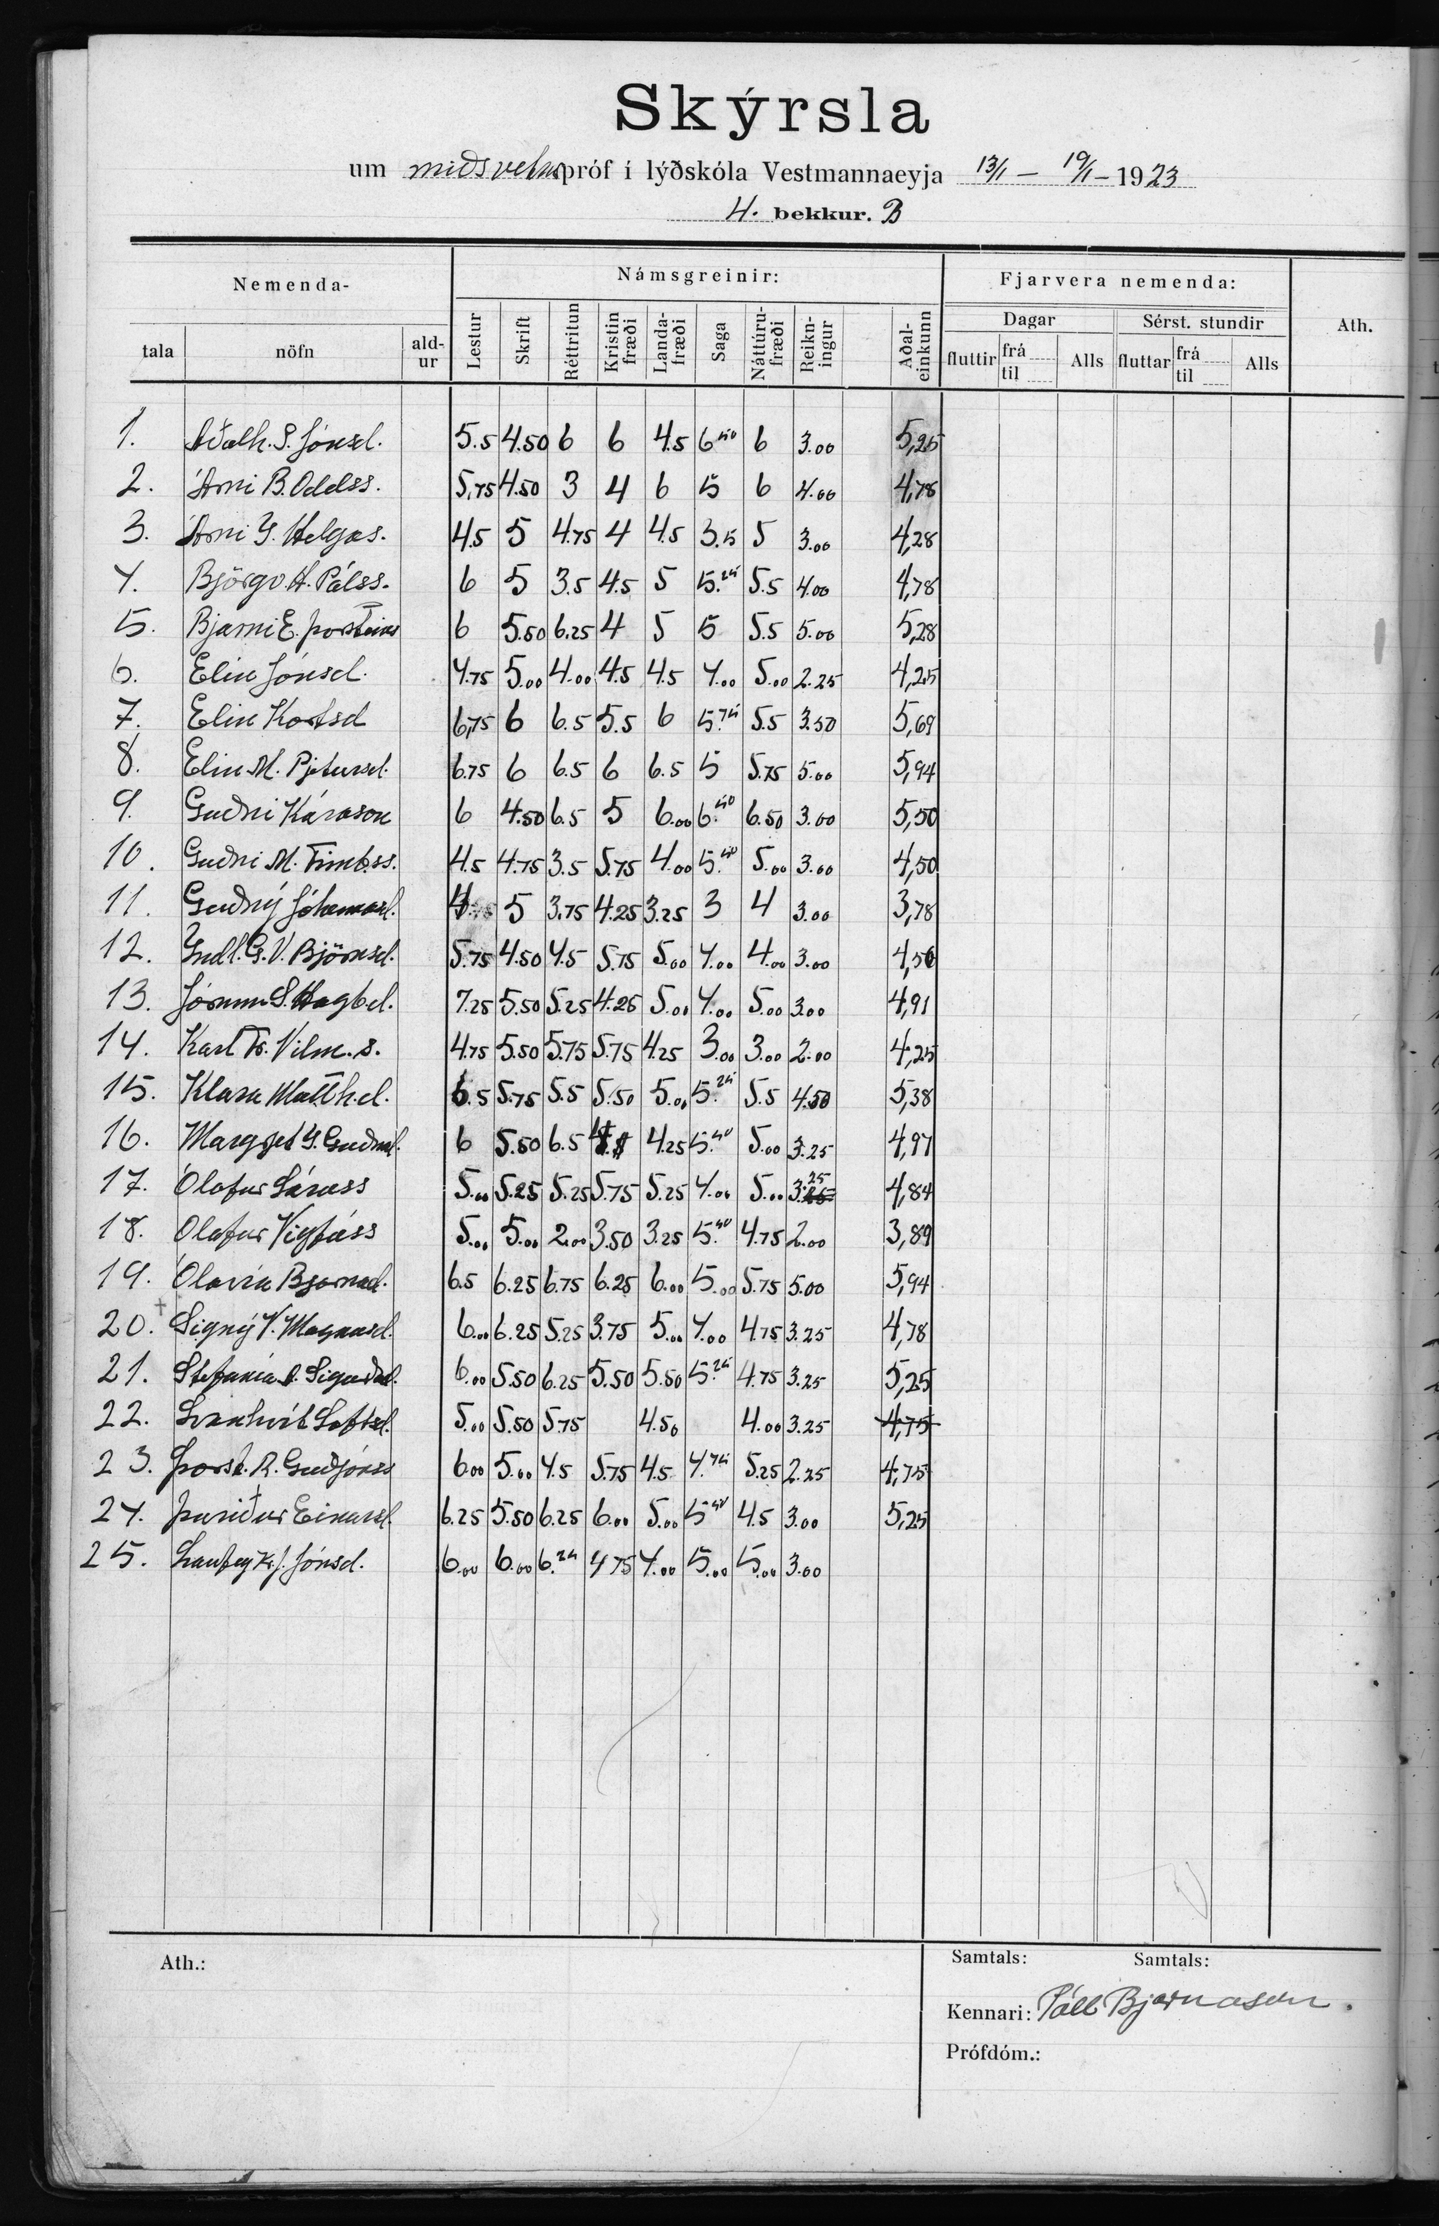 Skýrsla
um miðsvetrarpróf í lýðskóla Vestmannaeyja 13/1 – 19/1 – 1923
4. bekkur. B
Nemenda- Námsgreinir: Fjarvera nemenda: Ath.
tala nöfn ald-ur Lestur Skrift Réttritun Kristin fræði Landa-fræði Saga Náttúru-fræði Reikn-ingur Aðal-einkunn Dagar Sérst. stundir
fluttir frá til Alls fluttar frá til Alls
1. Aðalh. S. Jónsd. 5.5 4.50 6 6 4.5 6.50 6 3.00 5,25
2. Árni B. Oddss. 5,75 4.50 3 4 6 5 6 4.00 4,78
3. Árni G. Helgas. 4.5 5 4.75 4 4.5 3.75 5 3.00 4,28
4. Björgv. H. Pálss. 6 5 3.5 4.5 5 5.25 5.5 4.00 4,78
5. Bjarni E. Þorsteins 6 5.50 6.25 4 5 5 5.5 5.00 5,28
6. Elin Jónsd. 4.75 5.00 4.00 4.5 4.5 4.00 5.00 2.25 4,25
7. Elin Kortsd 6,75 6 6.5 5.5 6 5.75 5.5 3.50 5,69
8. Elin M. Pjetursd. 6.75 6 6.5 6 6.5 5 5.75 5.00 5,94
9. Guðni Kárason 6 4.50 6.5 5 6.00 6.50 6.50 3.00 5,50
10. Guðni M. Finnb.ss. 4.5 4.75 3.5 5.75 4.00 5.50 5.00 3.00 4,50
11. Guðný Jóhannsd. 5 3.75 4.25 3.25 3 4 3.00 3,78
12. G. V. Björnsd. 5.75 4.50 4.5 5.75 5.00 4.00 4.00 3.00 4,56
13. Jórunn S. Hagb.d. 7.25 5.50 5.25 4.25 5.00 4.00 5.00 3.00 4,91
14. Karl Kr. Vilm. s. 4.75 5.50 5.75 5.75 4.25 3.00 3.00 2.00 4,25
15. Klara Matth.d. 6.5 5.75 5.5 5.50 5.00 5.25 5.5 4.50 5,38
16. Margrjet G. Guðm.d. 6 5.50 6.5 4.25 5.50 5.00 3.25 4,97
17. Ólafur Láruss 5.00 5.25 5.25 5.75 5.25 4.00 5.00 3.25 4,84
18. Ólafur Vigfúss 5.00 5.00 2.00 3.50 3.25 5.50 4.75 2.00 3,89
19. Ólavía Bjarnad. 6.5 6.25 6.75 6.25 6.00 5.00 5.75 5.00 5,94
20. Signý V. Magnúsd. 6.00 6.25 5.25 3.75 5.00 4.00 4.75 3.25 4,78
21. Stefanía Sigurðd. 6.00 5.50 6.25 5.50 5.50 5.25 4.75 3.25 5,25
22. Svanhvít Loftsd. 5.00 5.50 5.75 4.50 4.00 3.25 4,75
23. Þorst. R. Guðjónss 6.00 5.00 4.5 5.75 4.5 4.75 5.25 2.25 4,75
24. Þuríður Einarsd. 6.25 5.50 6.25 6.00 5.00 5.50 4.5 3.00 5,25
25. Laufey Kr. J. Jónsd. 6.00 6.00 6.25 4 75 4.00 5.00 5.00 3.00
Ath.: Samtals: Samtals:
Kennari: Páll Bjarnason.
Prófdóm.: